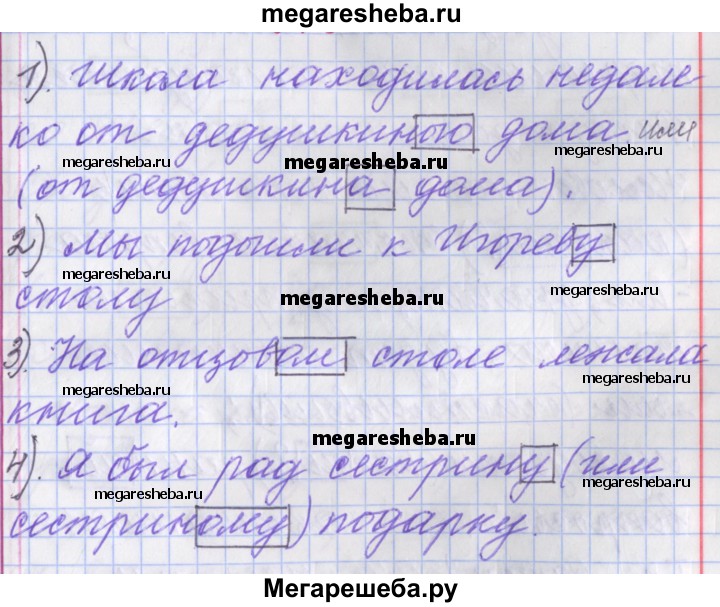 megaresheba.ru
1). Школа находилась недале-
ко от дедушкиного дома или
megaresheba.ru megaresheba.ru megaresheba.ru
(от дедушкина дома).
2) Мы подошли к Игореву
megaresheba.ru megaresheba.ru
столу
megaresheba.ru
3). На отцовом столе лежала
megaresheba.ru megaresheba.ru
книга.
megaresheba.ru
4). Я был рад сестрину (или
megaresheba.ru megaresheba.ru
сестриному) подарку.
Мегарешеба.ру